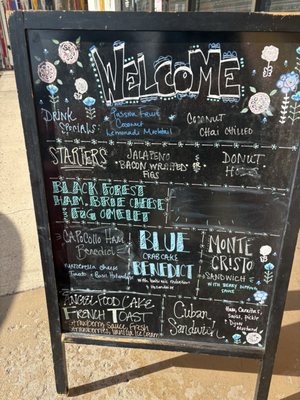 WELCOME
DRINK
Specials
Passion Fruit
Coconut
Lemonade Mocktail
Coconut
Chai Chilled
STARTERS
JALAPEÑO
BACON WRAPPED
FIGS
DONUT
BLACK FOREST
HAM, BRIE CHEESE
EGG OMELET
CAPOCOLLO HAM
Benedict
cheese
BLUE
CRAB CAKE
BENEDICT
MONTE
CRISTO
SANDWICH
WITH BERRY
SAUCE
ANGEL FOOD CAKE
FRENCH TOAST
Strawberry Sauce, Fresh
Strawberries, Vanilla Ice Cream
Cuban
Sandwich
Ham,
Swiss, pickle
Dijon
Mustard